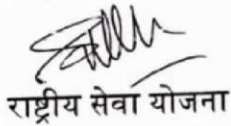 राष्ट्रीय सेवा योजना